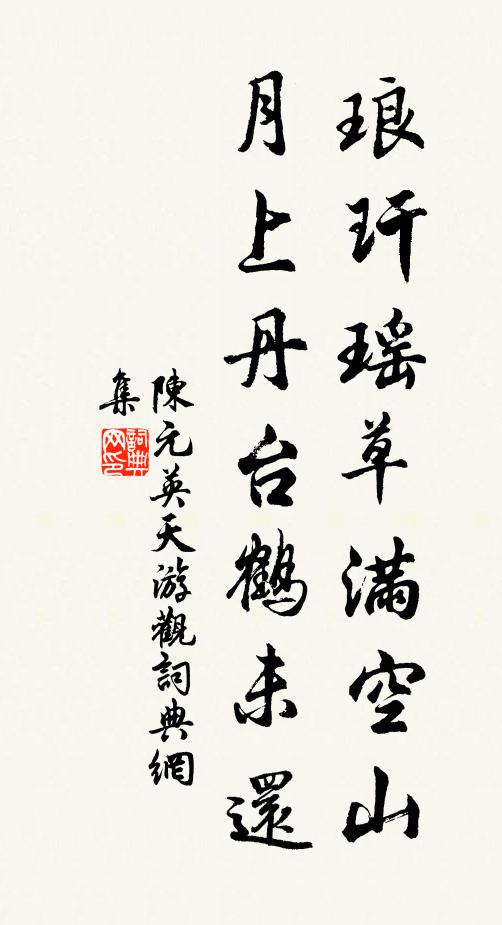 琅玕瑶草满空山
月上丹台鹤未還
陳元英天游觀詞典網
集
詞典网印